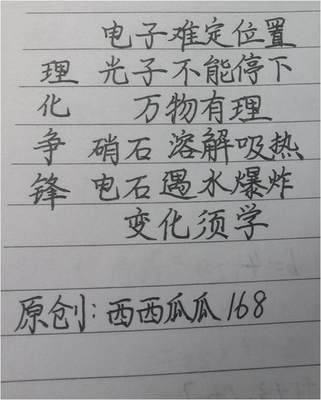 电子难定位置
理 光子不能停下
化 万物有理
争 硝石 溶解吸热
锋 电石遇水爆炸
变化须学
原创：西西瓜瓜168